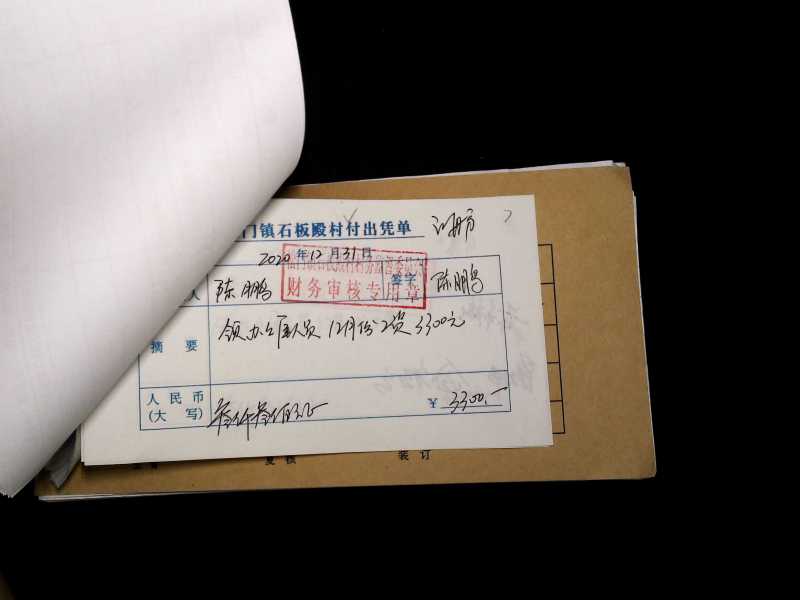 门镇石板殿村付出凭单
2020年12月31日
人 陈鹏 签字 陈鹏
财务审核专用章
摘要 领办公室人员12月份工资3300元
人民币
(大写) 叁仟叁佰元正 ¥ 3300.-
复核 装订